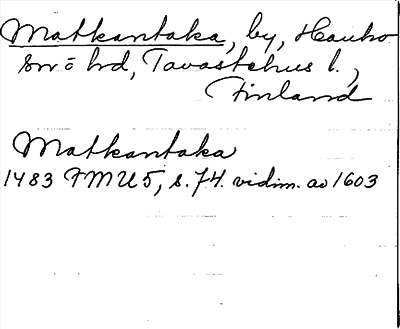 Matkantaka, by, Hauho
sn o hd, Tavastehus l.,
Finland
Matkantaka
1483 FMU 5, s. 74. vidim. av 1603